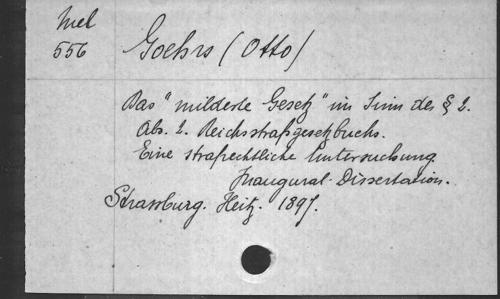 Mel
556
Goehrs (Otto)
Das "mildeste Gesetz" im Sinn des § 2.
Abs. 2. Reichsstrafgesetzbuchs.
Eine strafrechtliche Untersuchung
Inaugural-Dissertation.
Strassburg. Heitz. 1897.